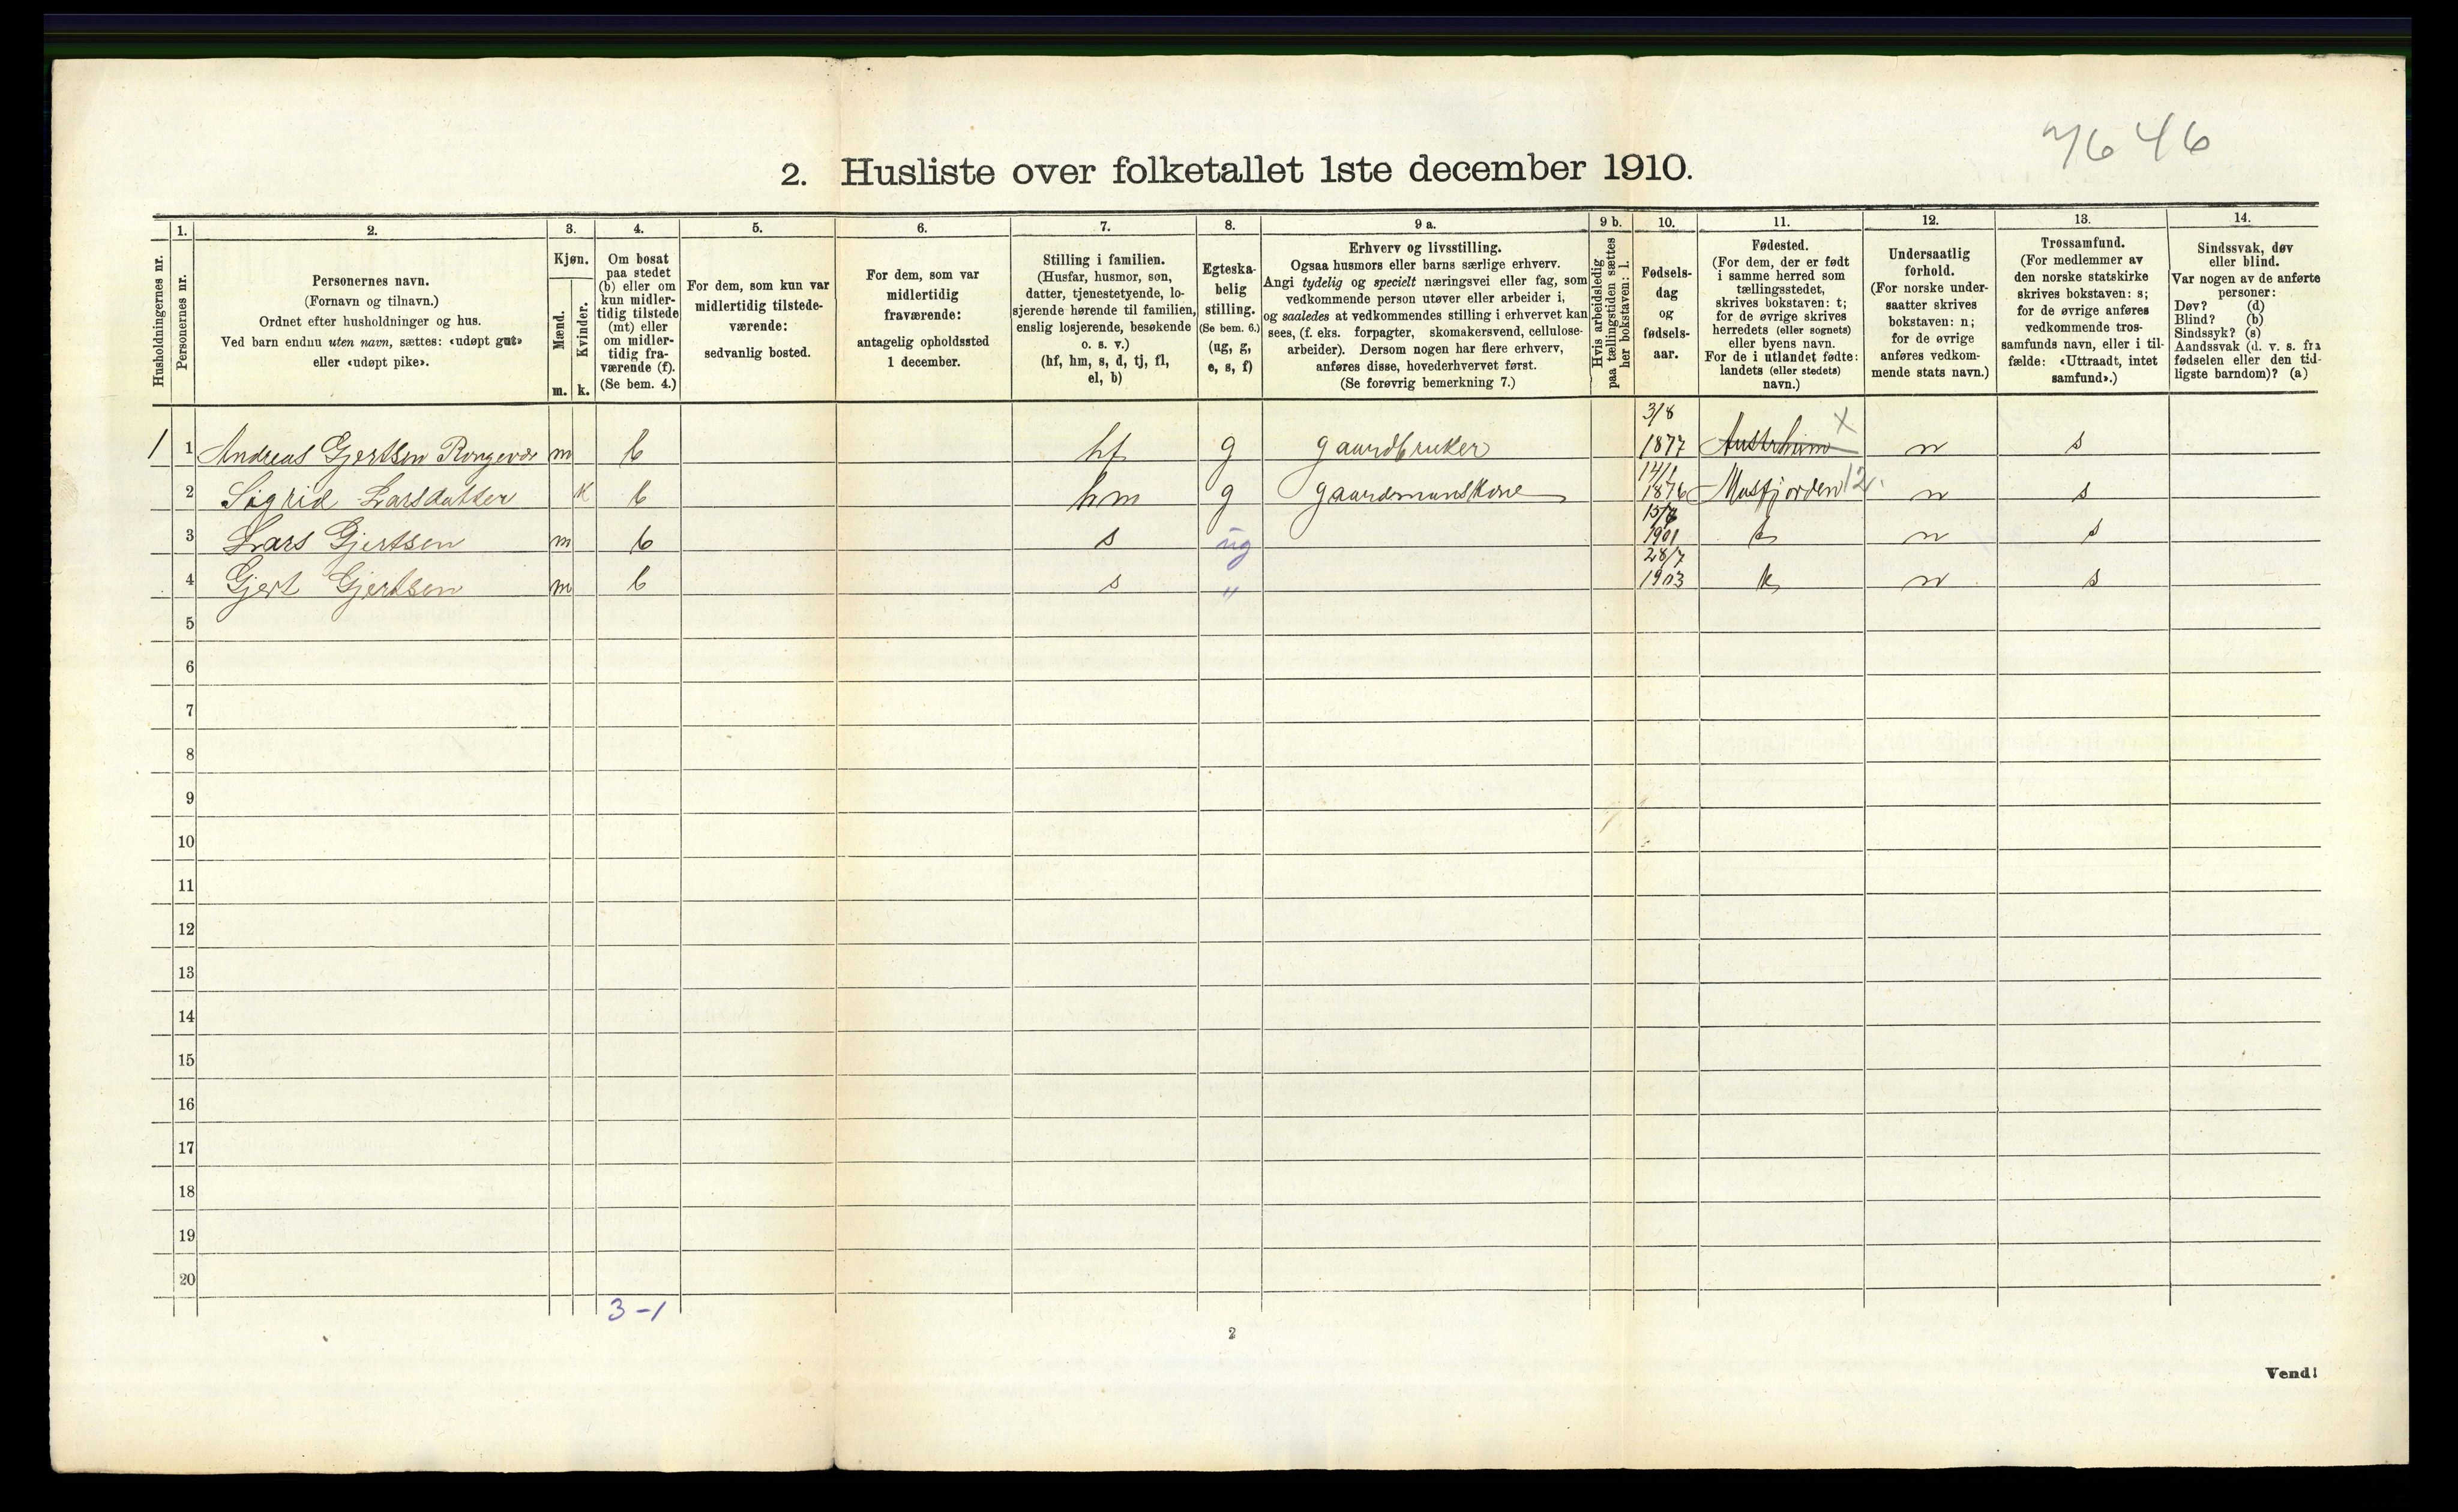 7646
2. Husliste over folketallet 1ste december 1910.
Husholdningernes nr.
1. Personernes nr.
2. Personernes navn.
(Fornavn og tilnavn.)
Ordnet efter husholdninger og hus.
Ved barn endnu uten navn, sættes: «udøpt gut»
eller «udøpt pike».
3. Kjøn.
Mænd. Kvinder.
m. k.
4. Om bosat
paa stedet
(b) eller om
kun midler-
tidig tilstede
(mt) eller
om midler-
tidig fra-
værende (f).
(Se bem. 4.)
5. For dem, som kun var
midlertidig tilstede-
værende:
sedvanlig bosted.
6. For dem, som var
midlertidig
fraværende:
antagelig opholdssted
1 december.
7. Stilling i familien.
(Husfar, husmor, søn,
datter, tjenestetyende, lo-
sjerende hørende til familien,
enslig losjerende, besøkende
o. s. v.)
(hf, hm, s, d, tj, fl,
el, b)
8. Egteska-
belig
stilling.
(Se bem. 6.)
(ug, g,
e, s, f)
9 a. Erhverv og livsstilling.
Ogsaa husmors eller barns særlige erhverv.
Angi tydelig og specielt næringsvei eller fag, som
vedkommende person utøver eller arbeider i,
og saaledes at vedkommendes stilling i erhvervet kan
sees, (f. eks. forpagter, skomakersvend, cellulose-
arbeider). Dersom nogen har flere erhverv,
anføres disse, hovederhvervet først.
(Se forøvrig bemerkning 7.)
9 b. Hvis arbeidsledig
paa tællingstiden sættes
her bokstaven: l.
10. Fødsels-
dag
og
fødsels-
aar.
11. Fødested.
(For dem, der er født
i samme herred som
tællingsstedet,
skrives bokstaven: t;
for de øvrige skrives
herredets (eller sognets)
eller byens navn.
For de i utlandet fødte:
landets (eller stedets)
navn.)
12. Undersaatlig
forhold.
(For norske under-
saatter skrives
bokstaven: n;
for de øvrige
anføres vedkom-
mende stats navn.)
13. Trossamfund.
(For medlemmer av
den norske statskirke
skrives bokstaven: s;
for de øvrige anføres
vedkommende tros-
samfunds navn, eller i til-
fælde: «Uttraadt, intet
samfund».)
14. Sindssvak, døv
eller blind.
Var nogen av de anførte
personer:
Døv? (d)
Blind? (b)
Sindssyk? (s)
Aandssvak (d. v. s. fra
fødselen eller den tid-
ligste barndom)? (a)
1 1 Andreas Gjertsen Rongevær m b hf g gaardbruker 3/8 1877 Austrheim X n s
2 Sigrid Larsdatter k b hm g gaardsmanskone 14/1 1876 Masfjorden 12. n s
3 Lars Gjertsen m b s ug 1901 t n s
4 Gjert Gjertsen m b s " 28/7 1903 t n s
5
6
7
8
9
10
11
12
13
14
15
16
17
18
19
20
3-1
2
Vend!